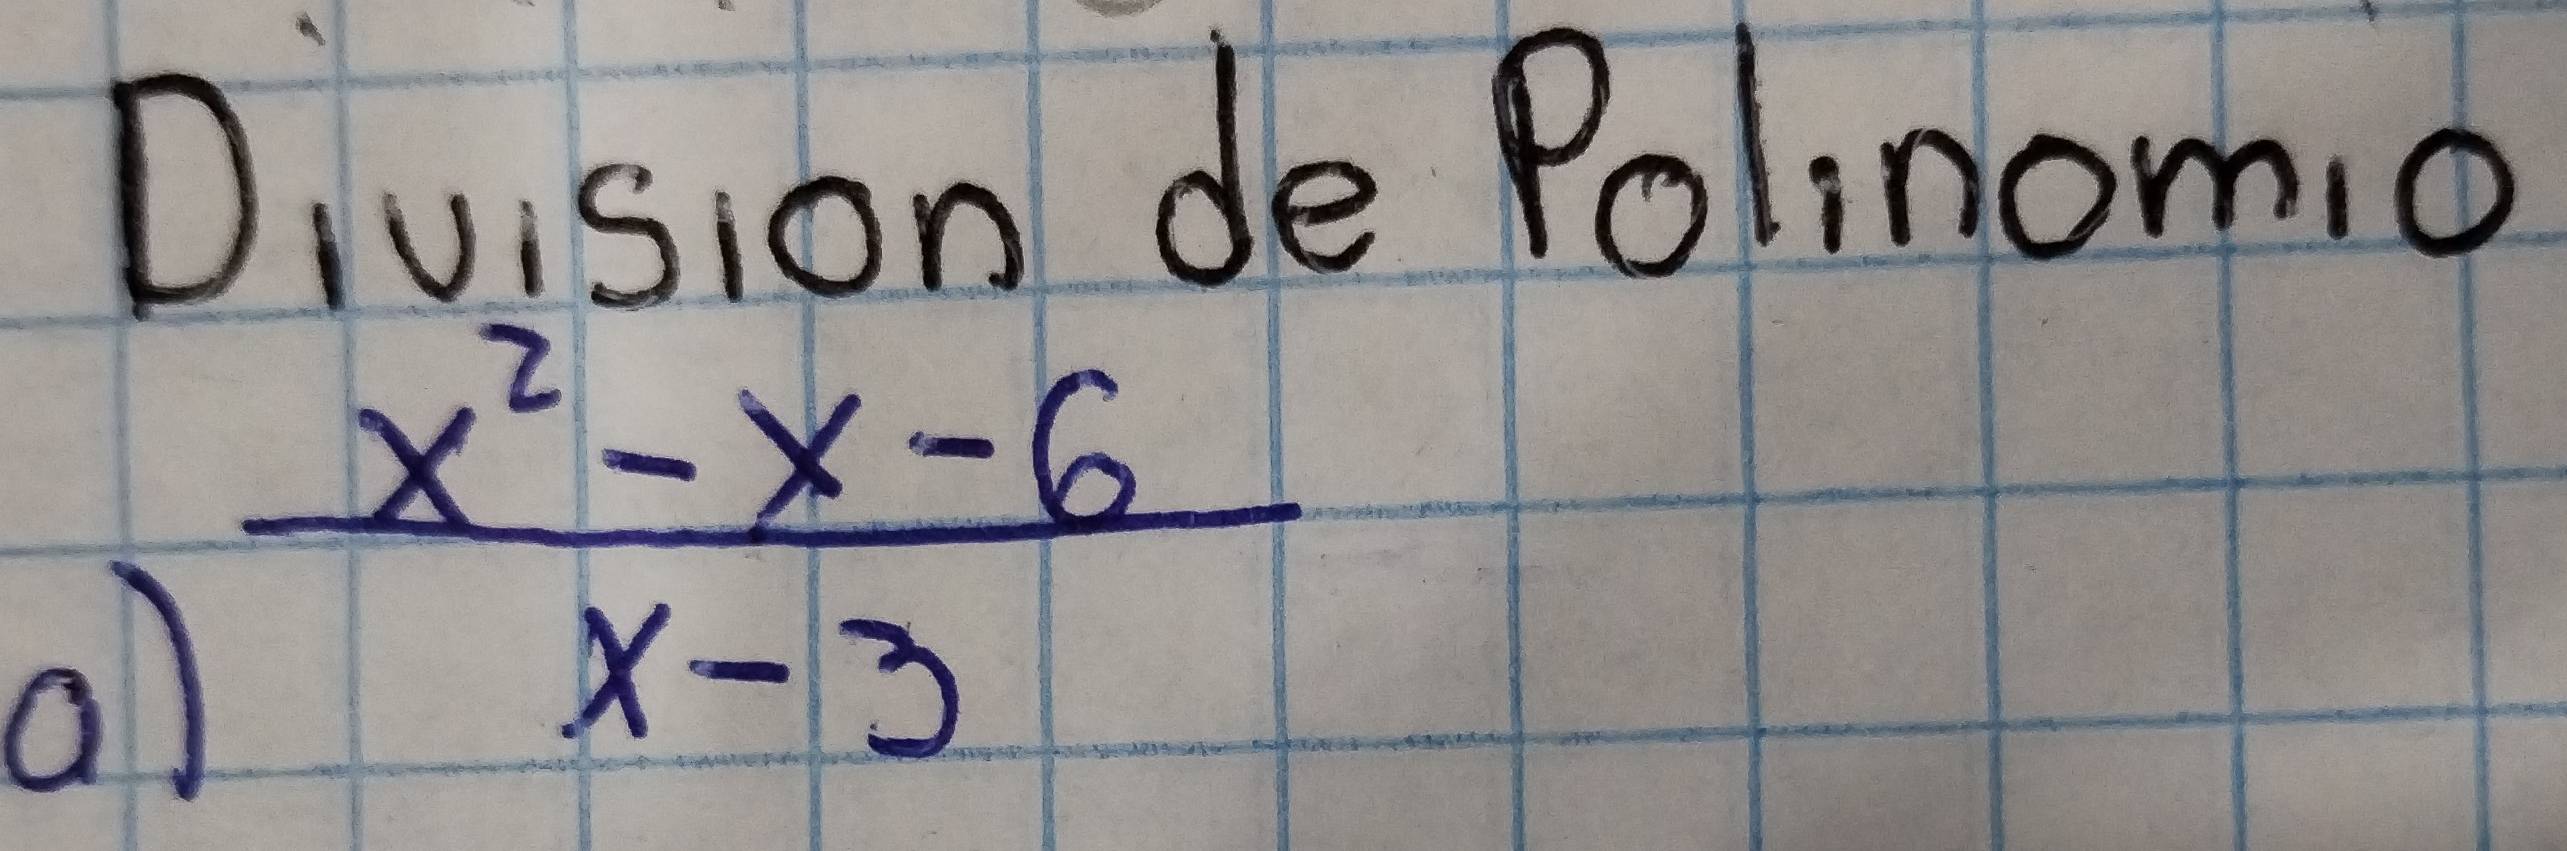 Division de Polinomio
x² - x - 6
a)
x - 3